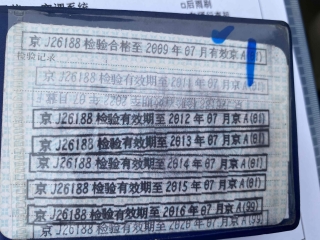 后雨刷
京 J26188 检验合格至 2009 年 07 月有效京 A(01)
检验记录
京 J26188 检验有效期至 2011 年 07 月京 A(01)
京 J26188 检验有效期至 2012 年 07 月京 A(01)
京 J26188 检验有效期至 2013 年 07 月京 A(01)
京 J26188 检验有效期至 2014 年 07 月京 A(01)
京 J26188 检验有效期至 2015 年 07 月京 A(01)
京 J26188 检验有效期至 2016 年 07 月京 A(99)
京 J26188 检验有效期至 2020 年 07 月京 A(99)